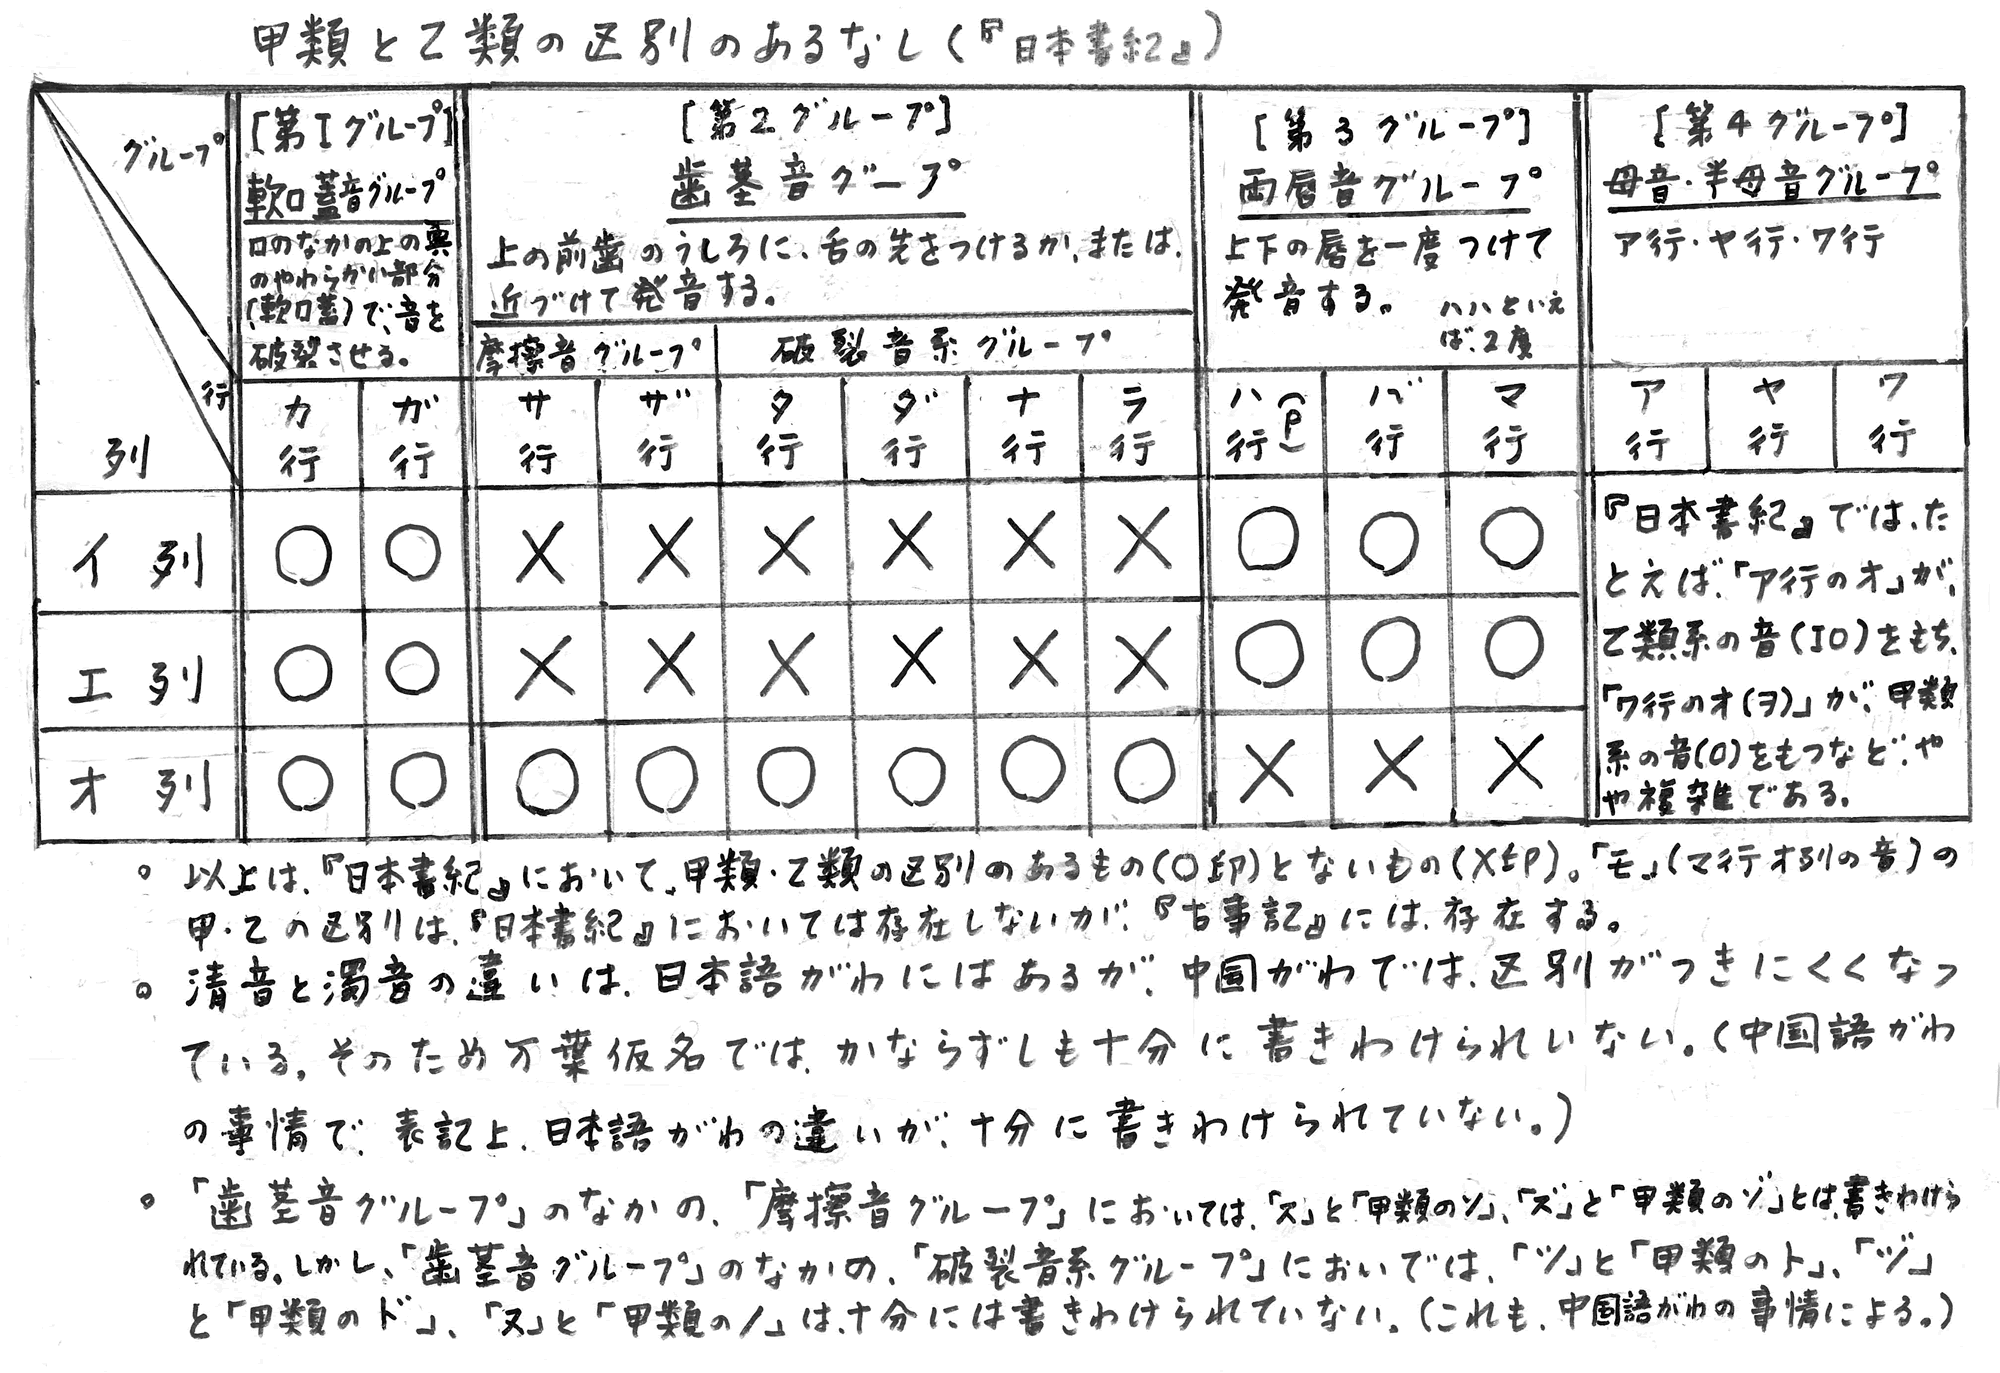 甲類と乙類の区別のあるなし(『日本書紀』)
グループ
行
列
[第1グループ]
軟口蓋音グループ
口のなかの上の奥
のやわらかい部分
(軟口蓋)で、音を
破裂させる。
[第2グループ]
歯茎音グープ
上の前歯のうしろに、舌の先をつけるか、または、
近づけて発音する。
摩擦音グループ
破裂音系グループ
[第3グループ]
両唇音グループ
上下の唇を一度つけて
発音する。
ハハといえ
ば、2度
[第4グループ]
母音・半母音グループ
ア行・ヤ行・ワ行
カ行 ガ行 サ行 ザ行 タ行 ダ行 ナ行 ラ行 ハ行(P) バ行 マ行 ア行 ヤ行 ワ行
イ列 ○ ○ × × × × × × ○ ○ ○
エ列 ○ ○ × × × × × × ○ ○ ○
オ列 ○ ○ ○ ○ ○ ○ ○ ○ × × ×
『日本書紀』では、た
とえば、「ア行のオ」が、
乙類系の音(IO)をもち、
「ワ行のオ(ヲ)」が、甲類
系の音(O)をもつなど、や
や複雑である。
。以上は、『日本書紀』において、甲類・乙類の区別のあるもの(○印)とないもの(×印)。「モ」(マ行オ列の音)の
甲・乙の区別は、『日本書紀』においては存在しないが、『古事記』には、存在する。
。清音と濁音の違いは、日本語がわにはあるが、中国がわでは、区別がつきにくくなっ
ている。そのため万葉仮名では、かならずしも十分に書きわけられいない。(中国語がわ
の事情で、表記上、日本語がわの違いが、十分に書きわけられていない。)
。「歯茎音グループ」のなかの、「摩擦音グループ」においては、「ス」と「甲類のソ」、「ズ」と「甲類のゾ」とは、書きわけら
れている。しかし、「歯茎音グループ」のなかの、「破裂音系グループ」においでは、「ツ」と「甲類のト」、「ヅ」
と「甲類のド」、「ヌ」と「甲類のノ」は、十分には書きわけられていない。(これも、中国語がわの事情による。)